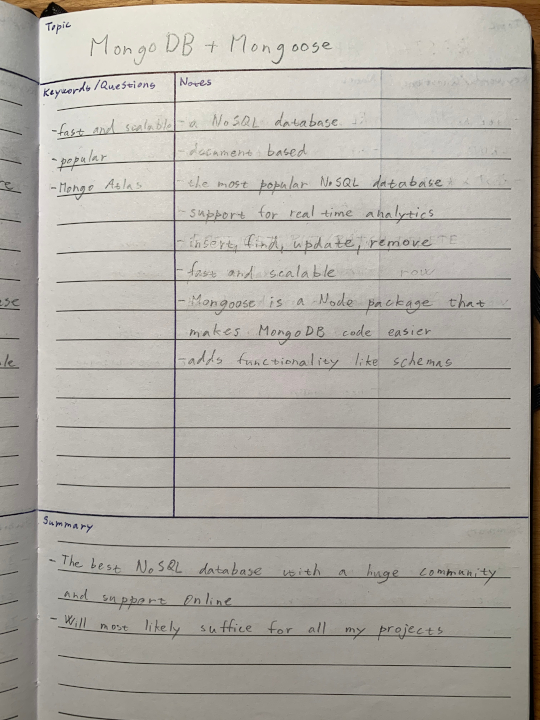 Topic
MongoDB + Mongoose
Keywords/Questions
- fast and scalable
- popular
- Mongo Atlas
Notes
- a NoSQL database
- document based
- the most popular NoSQL database
- support for real time analytics
- insert, find, update, remove
- fast and scalable
- Mongoose is a Node package that
makes MongoDB code easier
- adds functionality like schemas
Summary
- The best NoSQL database with a huge community
and support online
- Will most likely suffice for all my projects